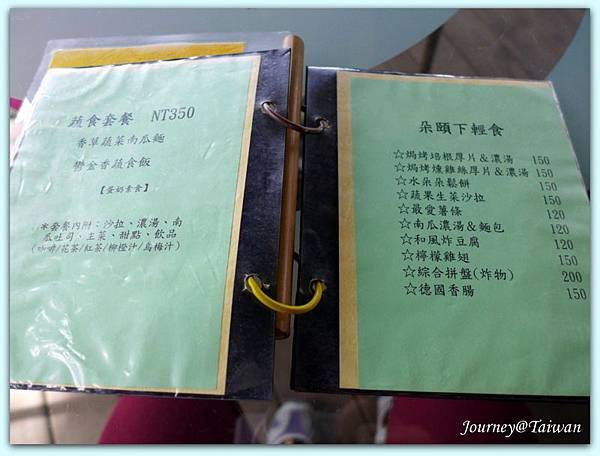 蔬食套餐 NT350
香草蔬菜南瓜麵
鬱金香蔬食飯
【蛋奶素食】
*套餐內附:沙拉、濃湯、南
瓜吐司、主菜、甜點、飲品
(咖啡/花茶/紅茶/柳橙汁/烏梅汁)
朵頤下輕食
☆焗烤培根厚片&濃湯 150
☆焗烤燻雞絲厚片&濃湯 150
☆水朵朵鬆餅 150
☆蔬果生菜沙拉 150
☆最愛薯條 120
☆南瓜濃湯&麵包 120
☆和風炸豆腐 120
☆檸檬雞翅 150
☆綜合拼盤(炸物) 200
☆德國香腸 150
Journey@Taiwan